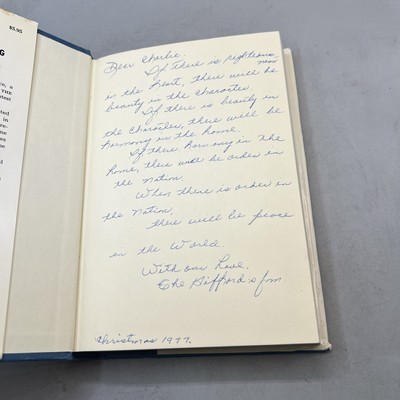 $5.95
G
Dear Charlie.
If there is righteous
ness
in the Heart, there will be
beauty in the Character
If there is beauty in
the Character, there will be
harmony in the home.
If there harmony in the
home, there will be order in
the nation.
When there is order in
the nation,
there will be peace
in the World.
With our Love,
The Gifford's
Christmas 1977.